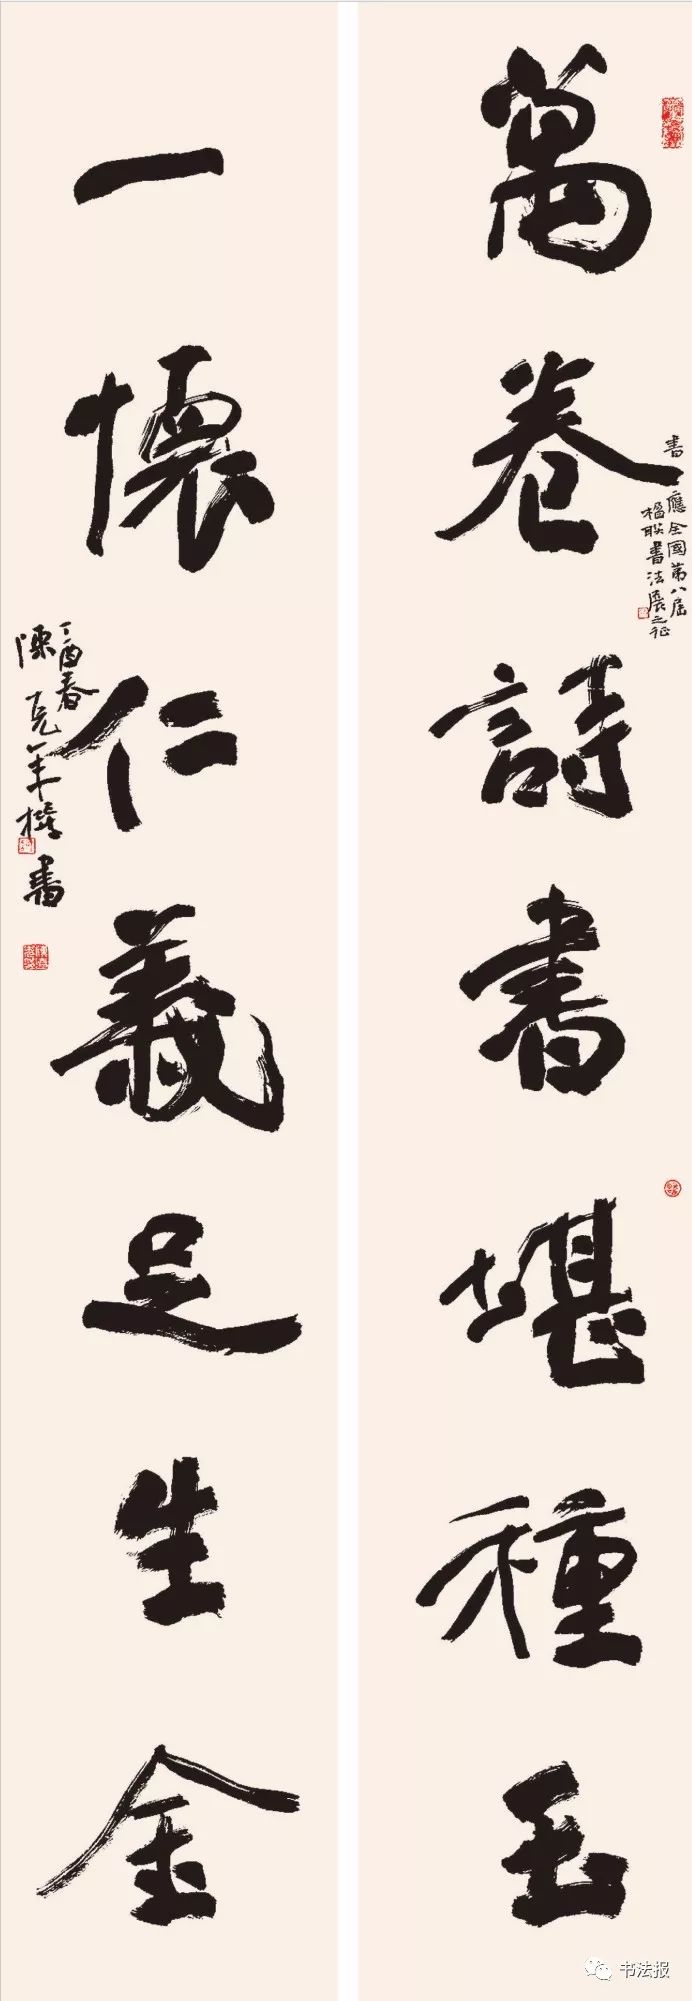 萬卷詩書堪種玉
書應全國第八屆
楹联書法展之征
一懷仁義足生金
丁酉春
陳克年撰書
书法报